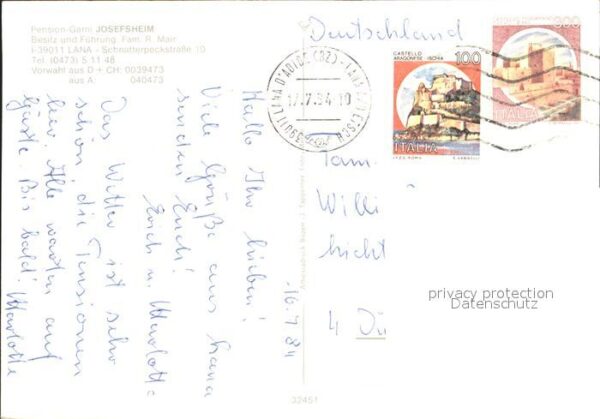 Pension-Garni JOSEFSHEIM
Besitz und Führung: Fam. R. Mair
I-39011 LANA - Schnatterpeckstraße 10
Tel. (0473) 5 11 48
Vorwahl aus D + CH: 0039473
aus A: 040473
Deutschland
17.7.84.10
CASTELLO
ARAGONESE ISCHIA
100
ITALIA
I.P.Z.S. ROMA
300
ITALIA
-16.7.84
Hallo Ihr Lieben!
Viele Grüße aus Lana
senden Euch!
Erich u. Marlotte
Das Wetter ist sehr
schön, die Pensionen
leer. Alle warten auf
Gäste. Bis bald! Marlotte
Fam.
Willi
4 Dü
32451
privacy protection
Datenschutz